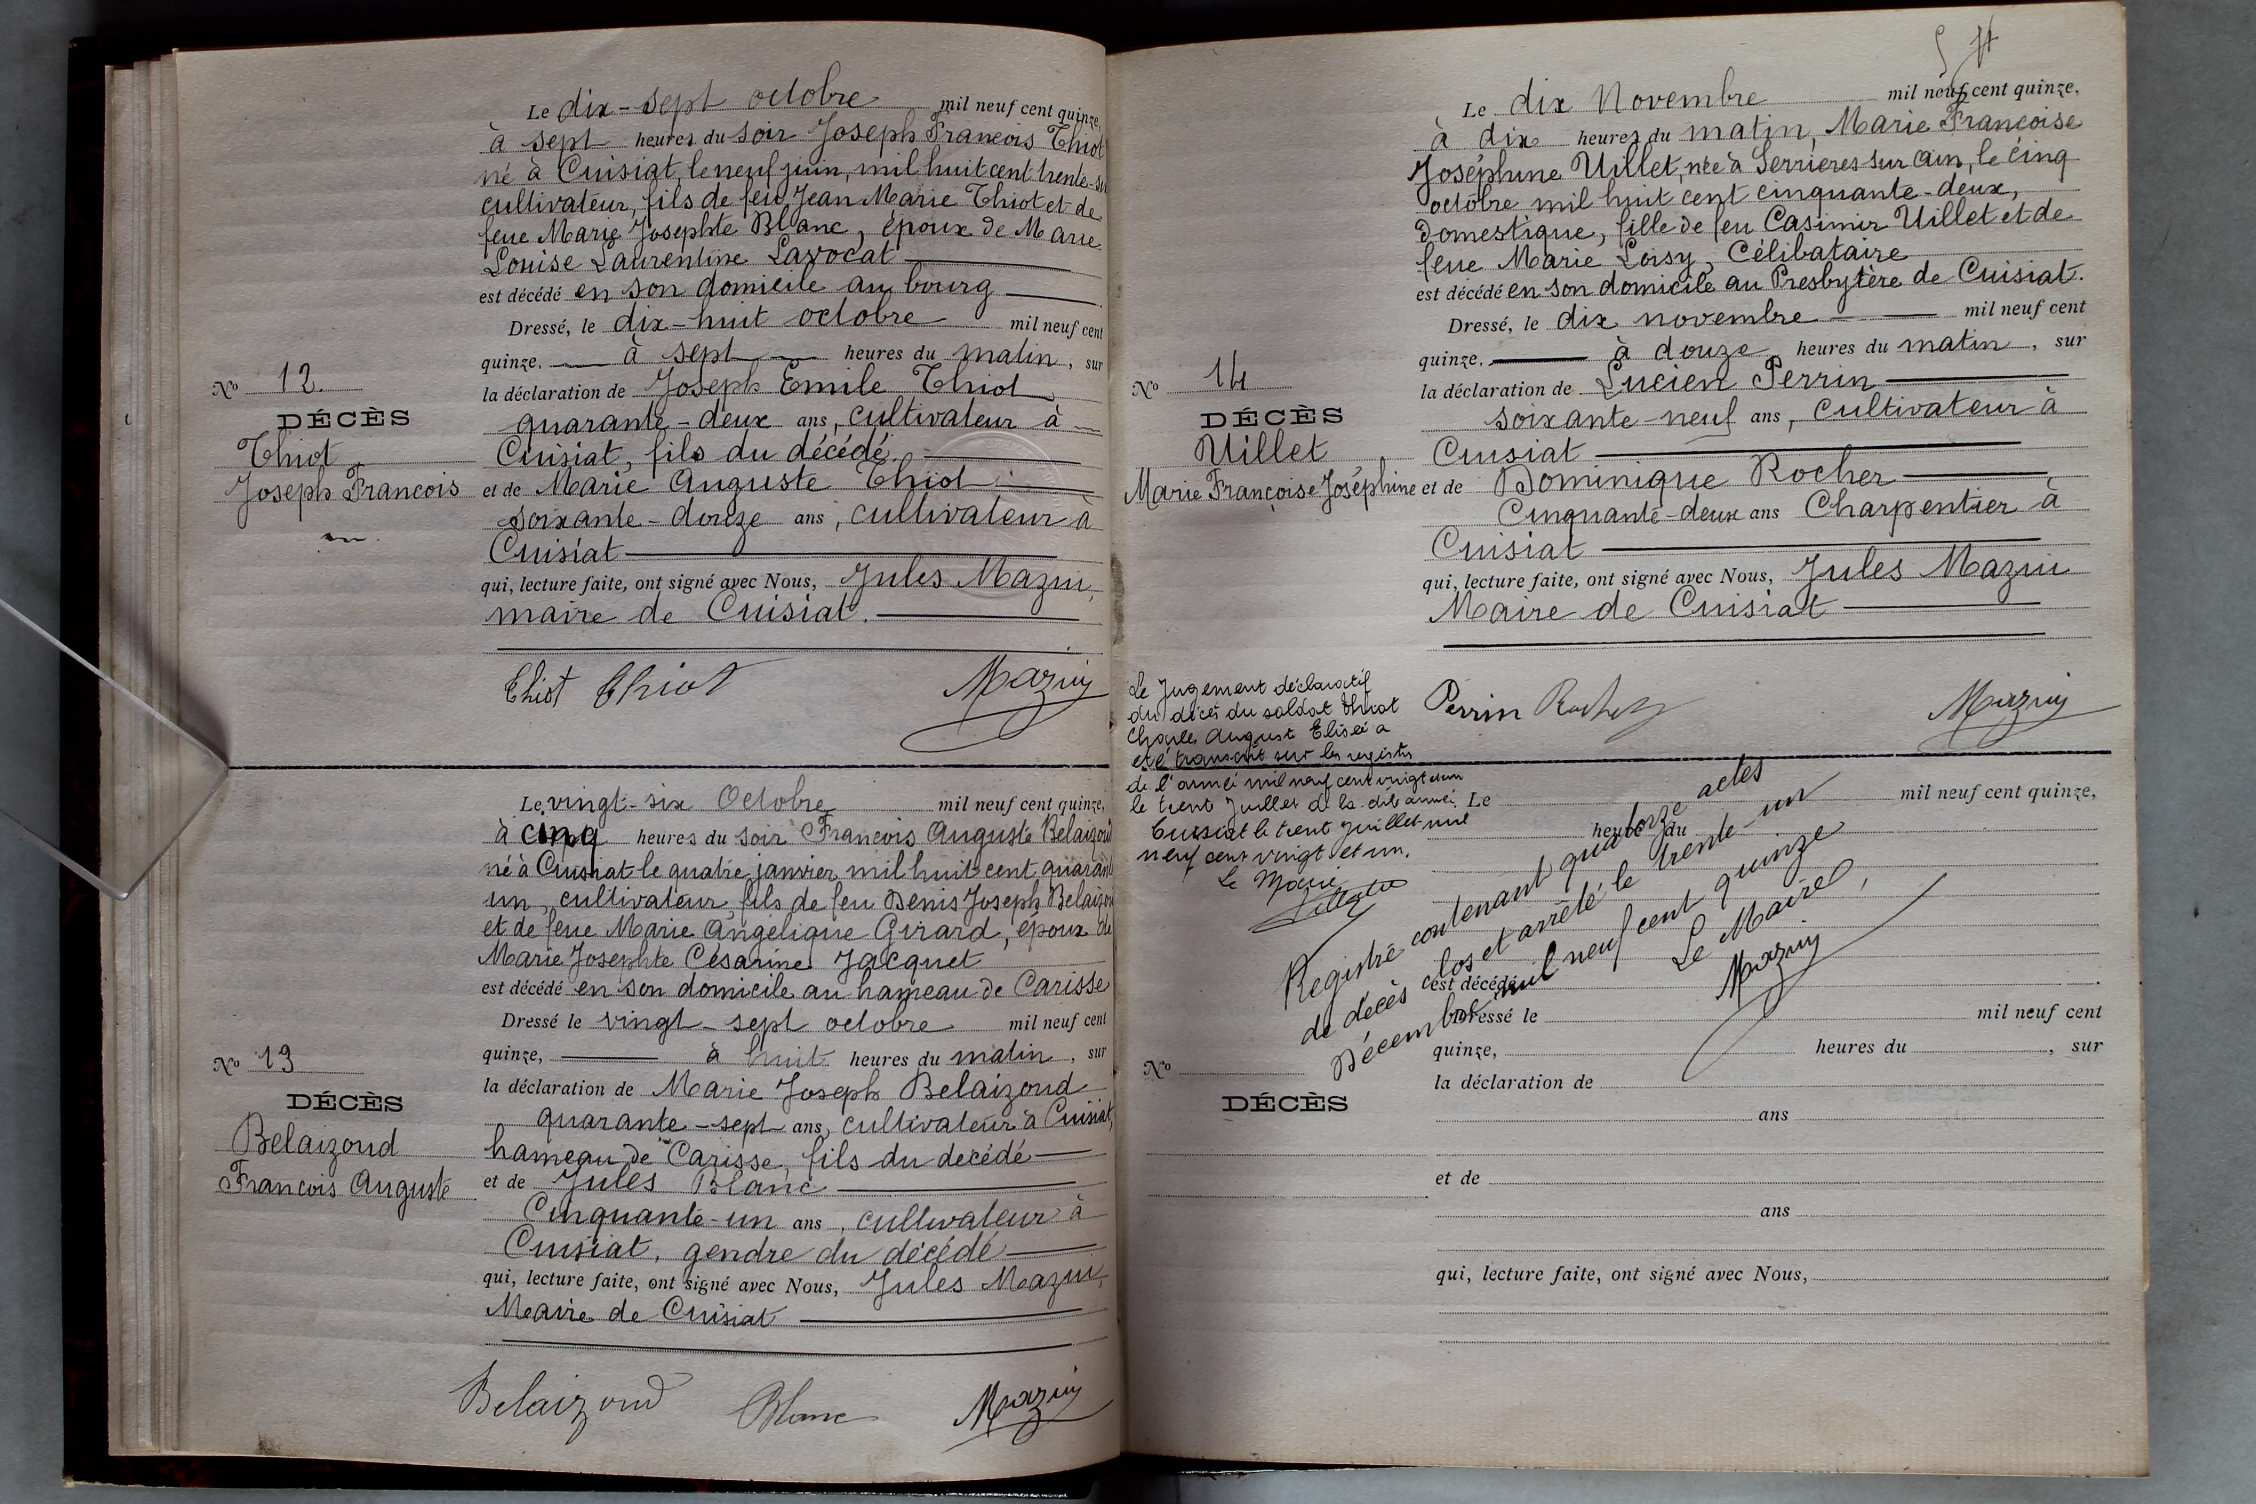 Le dix-sept octobre mil neuf cent quinze,
à sept heures du soir Joseph François Thiot
né à Cuisiat, le neuf juin, mil huit cent trente-six
cultivateur, fils de feu Jean Marie Thiot et de
feue Marie Josephte Blanc, époux de Marie
Louise Laurentine Lavocat
est décédé en son domicile au bourg
Dressé, le dix-huit octobre mil neuf cent
quinze, à sept heures du matin, sur
la déclaration de Joseph Emile Thiot
quarante-deux ans, cultivateur à
Cuisiat, fils du décédé
et de Marie Auguste Thiot
soixante-douze ans, cultivateur à
Cuisiat
qui, lecture faite, ont signé avec Nous, Jules Mazui,
maire de Cuisiat.
Thiot Thiot Mazuy
No 12.
DÉCÈS
Thiot
Joseph François
Le vingt-six Octobre mil neuf cent quinze,
à cinq heures du soir François Auguste Belaizoud
né à Cuisiat le quatre janvier mil huit cent quarante
un, cultivateur, fils de feu Denis Joseph Belaizoud
et de feue Marie Angélique Girard, époux de
Marie Josephte Césarine Jacquet
est décédé en son domicile au hameau de Carisse
Dressé le vingt-sept octobre mil neuf cent
quinze, à huit heures du matin, sur
la déclaration de Marie Joseph Belaizoud
quarante-sept ans, cultivateur à Cuisiat,
hameau de Carisse, fils du decédé
et de Jules Blanc
Cinquante-un ans, cultivateur à
Cuisiat, gendre du décédé
qui, lecture faite, ont signé avec Nous, Jules Mazui,
Maire de Cuisiat
Belaizoud Blanc Mazuy
No 13
DÉCÈS
Belaizoud
François Auguste
Le dix Novembre mil neuf cent quinze,
à dix heures du matin, Marie Françoise
Joséphine Uillet, née à Serrieres sur Ain, le cinq
octobre mil huit cent cinquante-deux,
domestique, fille de feu Casimir Uillet et de
feue Marie Loisy, Célibataire
est décédé en son domicile au Presbytère de Cuisiat.
Dressé, le dix novembre mil neuf cent
quinze, à douze heures du matin, sur
la déclaration de Lucien Perrin
soixante-neuf ans, cultivateur à
Cuisiat
et de Dominique Rocher
Cinquante-deux ans Charpentier à
Cuisiat
qui, lecture faite, ont signé avec Nous, Jules Mazui
Maire de Cuisiat
Perrin Rocher Mazuy
No 14
DÉCÈS
Uillet
Marie Françoise Joséphine
Le Jugement déclaratif
du décès du soldat Thiot
Charles August Elisée a
été transcrit sur les registres
de l'année mil neuf cent vingt et un
le trent Juillet de la dite année.
Cuisiat le trent Juillet mil
neuf cent vingt et un.
Le Maire
Registre contenant quatorze actes
de décès clos et arrêté le trente-un
Décembre mil neuf cent quinze
Le Maire,
Mazuy
Le mil neuf cent quinze,
heures du
est décédé
Dressé le mil neuf cent
quinze, heures du , sur
la déclaration de
ans
et de
ans
qui, lecture faite, ont signé avec Nous,
No
DÉCÈS